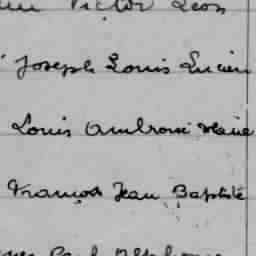 Victor Léon
Joseph Louis Lucien
Louis Ambroise Marie
François Jean Baptiste
Paul Alphonse